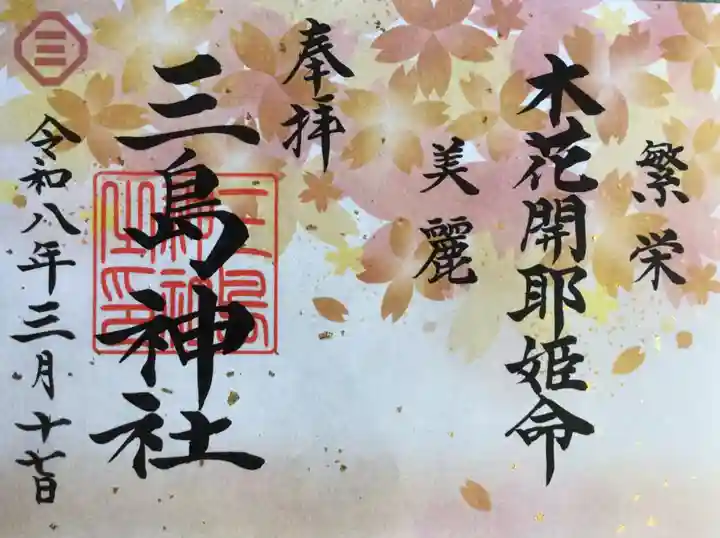 繁栄
木花開耶姫命
美麗
奉拝
三島神社
令和八年三月十七日